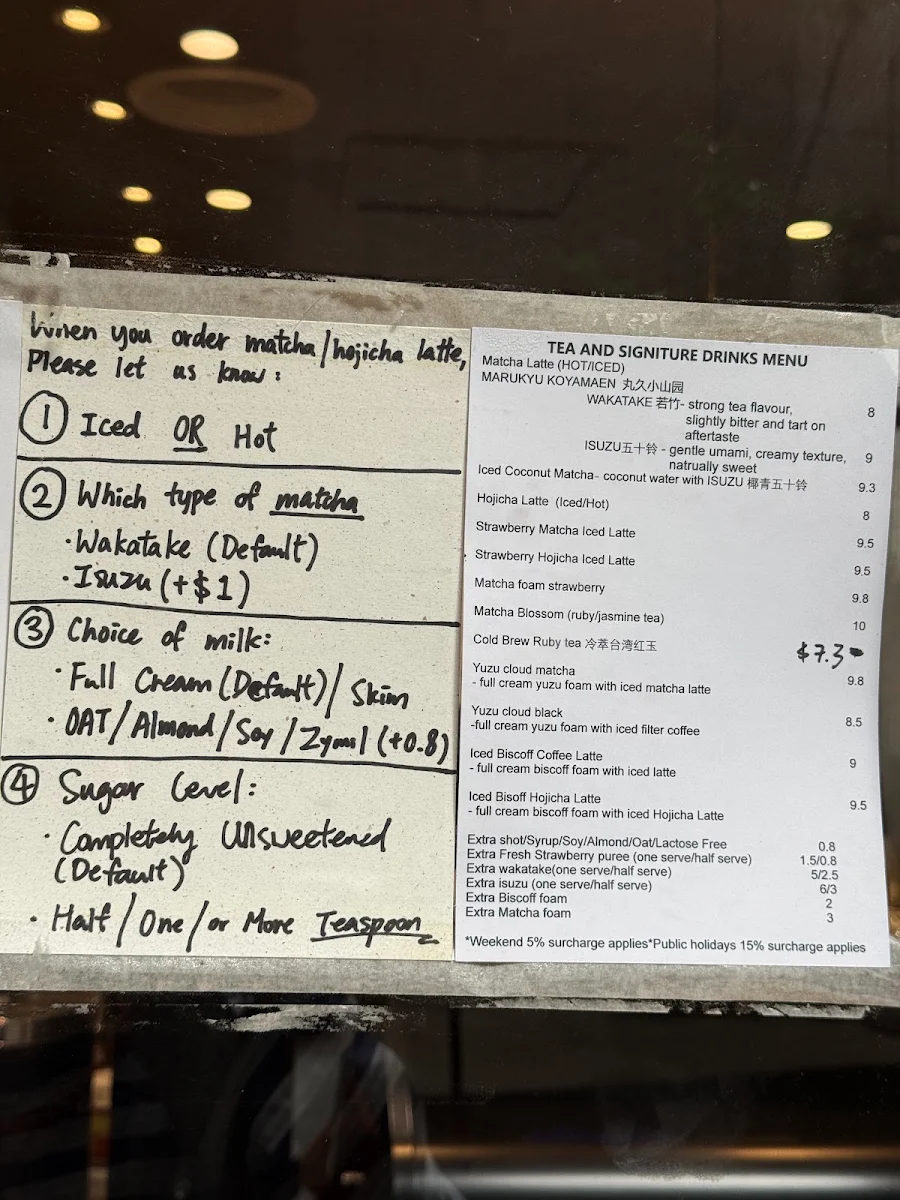 When you order matcha/hojicha latte,
Please let us know:
① Iced OR Hot
② Which type of matcha
· Wakatake (Default)
· Isuzu (+$1)
③ Choice of milk:
· Full Cream (Default)/ Skim
· OAT/Almond/Soy/Zymil (+0.8)
④ Sugar level:
· Completely Unsweetened
(Default)
· Half/One/or More Teaspoon
TEA AND SIGNITURE DRINKS MENU
Matcha Latte (HOT/ICED)
MARUKYU KOYAMAEN 丸久小山园
WAKATAKE 若竹- strong tea flavour, 8
slightly bitter and tart on
aftertaste
ISUZU五十铃 - gentle umami, creamy texture, 9
natrually sweet
Iced Coconut Matcha- coconut water with ISUZU 椰青五十铃 9.3
Hojicha Latte (Iced/Hot) 8
Strawberry Matcha Iced Latte 9.5
Strawberry Hojicha Iced Latte 9.5
Matcha foam strawberry 9.8
Matcha Blossom (ruby/jasmine tea) 10
Cold Brew Ruby tea 冷萃台湾红玉 $7.3
Yuzu cloud matcha 9.8
- full cream yuzu foam with iced matcha latte
Yuzu cloud black 8.5
-full cream yuzu foam with iced filter coffee
Iced Biscoff Coffee Latte 9
- full cream biscoff foam with iced latte
Iced Bisoff Hojicha Latte 9.5
- full cream biscoff foam with iced Hojicha Latte
Extra shot/Syrup/Soy/Almond/Oat/Lactose Free 0.8
Extra Fresh Strawberry puree (one serve/half serve) 1.5/0.8
Extra wakatake(one serve/half serve) 5/2.5
Extra isuzu (one serve/half serve) 6/3
Extra Biscoff foam 2
Extra Matcha foam 3
*Weekend 5% surcharge applies*Public holidays 15% surcharge applies